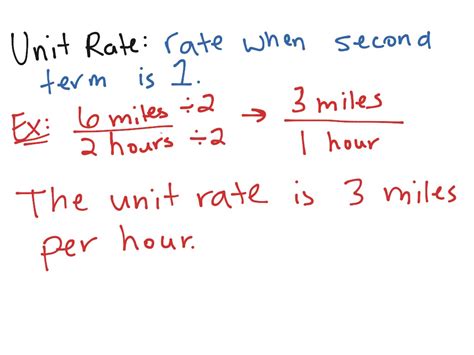 Unit Rate: rate when second
term is 1.
Ex: 6 miles ÷2 → 3 miles
2 hours ÷2 1 hour
The unit rate is 3 miles
per hour.